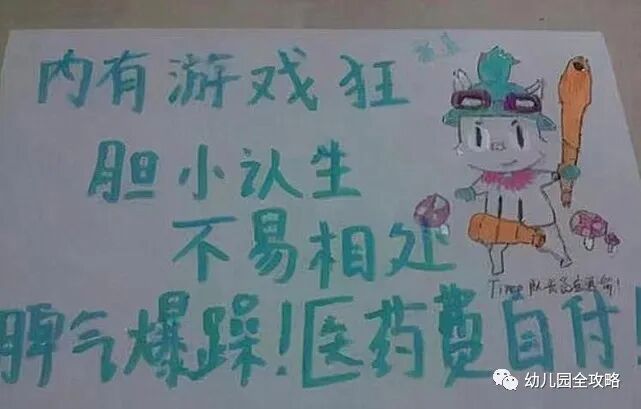 内有游戏狂
胆小认生
不易相处
脾气爆躁！医药费自付！
幼儿园全攻略